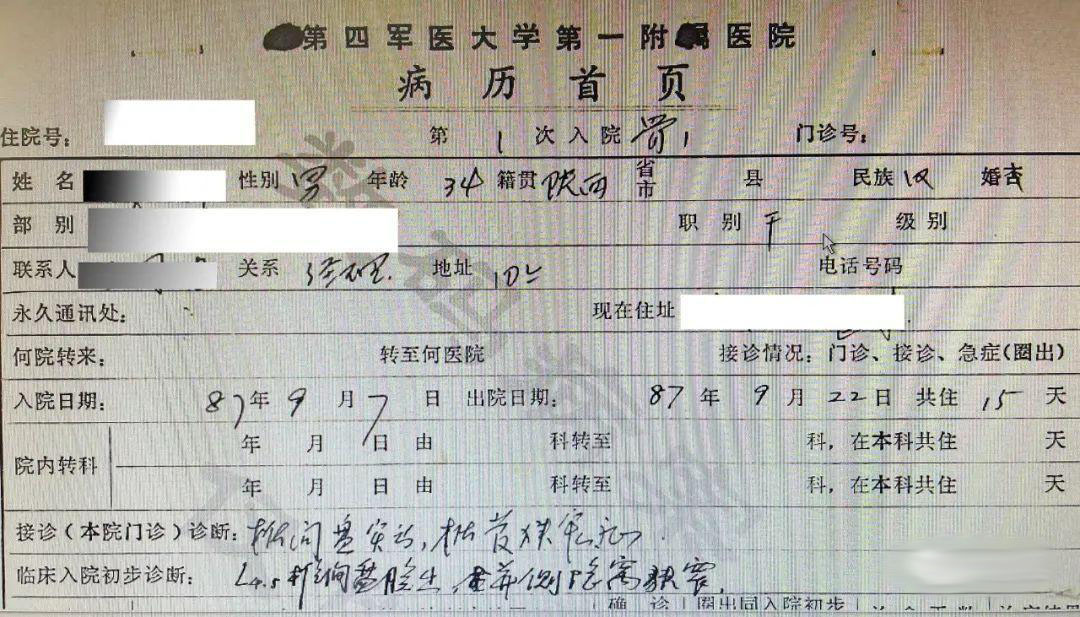 第四军医大学第一附属医院
病历首页
住院号: 第 1 次入院 骨1 门诊号:
姓名 性别 男 年龄 34 籍贯 陕西 省市 县 民族 汉 婚否
部别 职别 干 级别
联系人 关系 地址 电话号码
永久通讯处: 现在住址
何院转来: 转至何医院 接诊情况: 门诊、接诊、急症(圈出)
入院日期: 87年9月7日 出院日期: 87年9月22日 共住 15 天
院内转科 年 月 日 由 科转至 科, 在本科共住 天
年 月 日 由 科转至 科, 在本科共住 天
接诊(本院门诊)诊断: 椎间盘突出, 椎管狭窄症
临床入院初步诊断: L4.5椎间盘脱出, 侧隐窝狭窄
确诊 圈出同入院初步